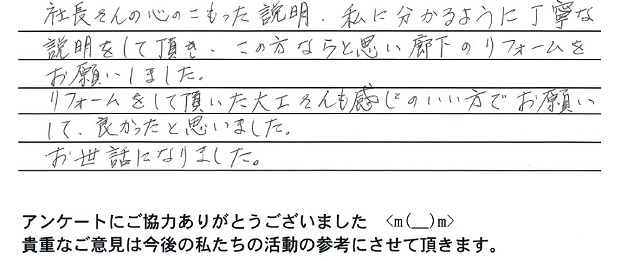 社長さんの心のこもった説明、私に分かるように丁寧な
説明をして頂き、この方ならと思い廊下のリフォームを
お願いしました。
リフォームをして頂いた大工さんも感じのいい方でお願い
して、良かったと思いました。
お世話になりました。
アンケートにご協力ありがとうございました <m(__)m>
貴重なご意見は今後の私たちの活動の参考にさせて頂きます。